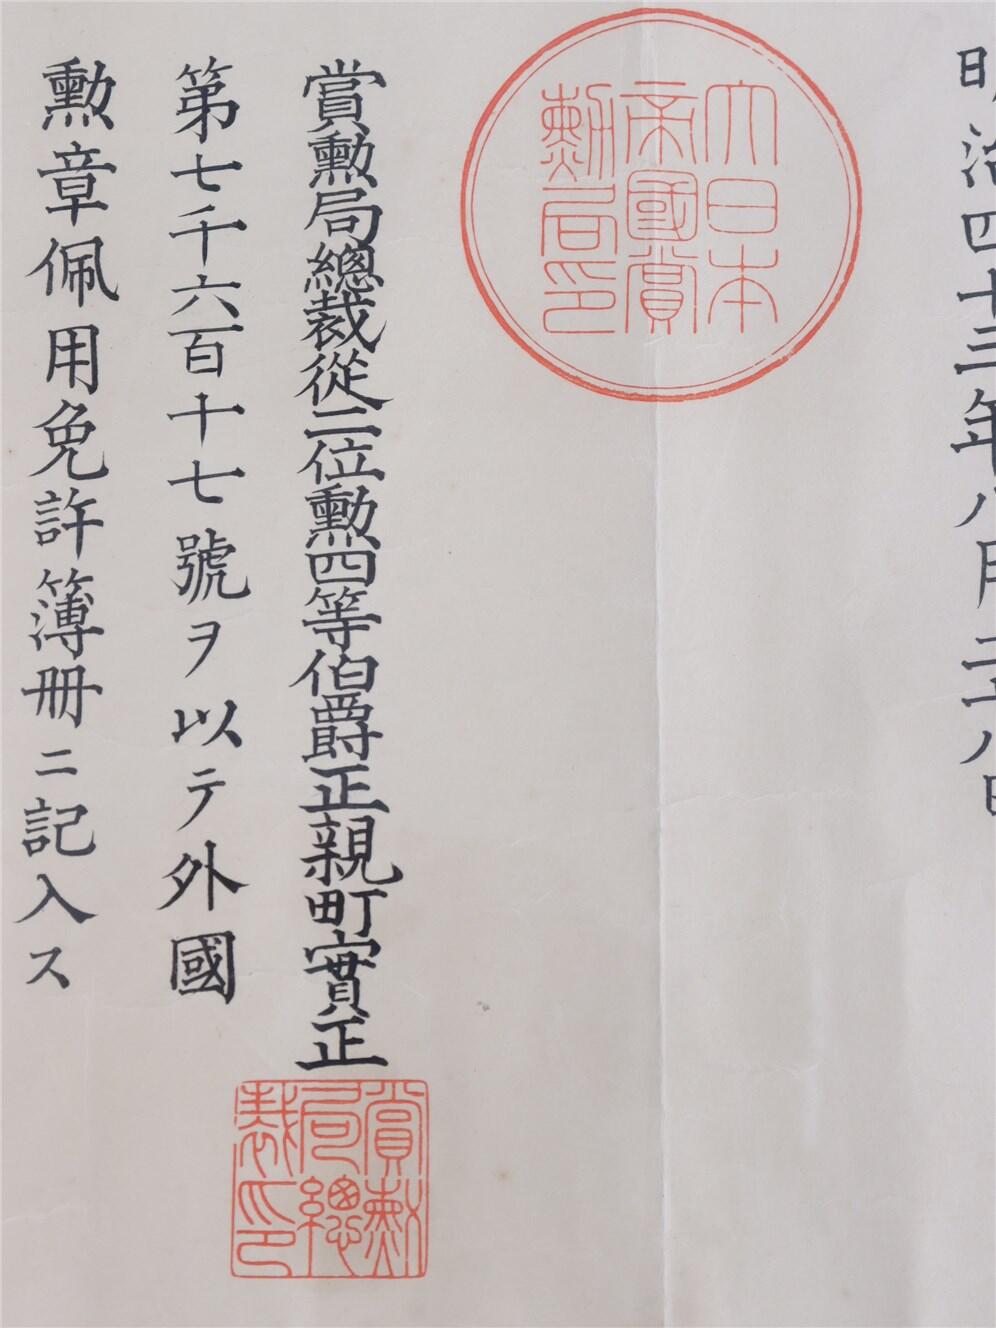 明治四十三年八月二十八日
大日本
帝國賞
勲局印
賞勲局總裁從二位勲四等伯爵正親町實正
賞勲
局總
裁印
第七千六百十七號ヲ以テ外國
勲章佩用免許簿冊ニ記入ス